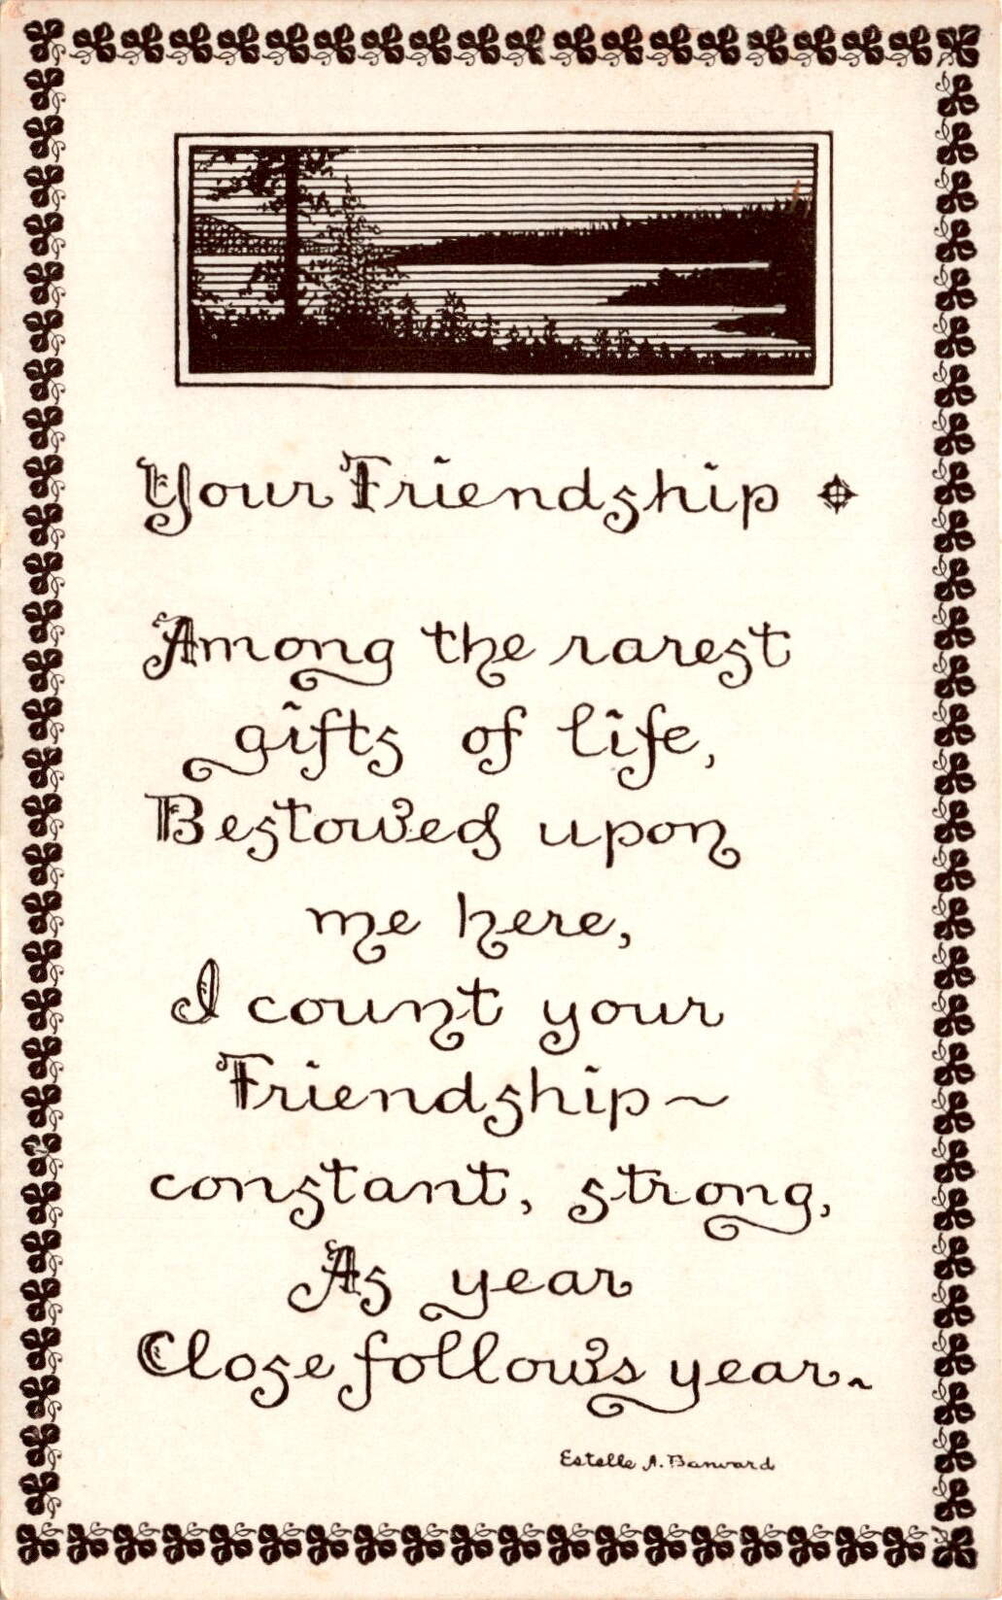 Your Friendship
Among the rarest
gifts of life,
Bestowed upon
me here,
I count your
Friendship~
constant, strong,
As year
Close follows year~
Estelle A. Banvard